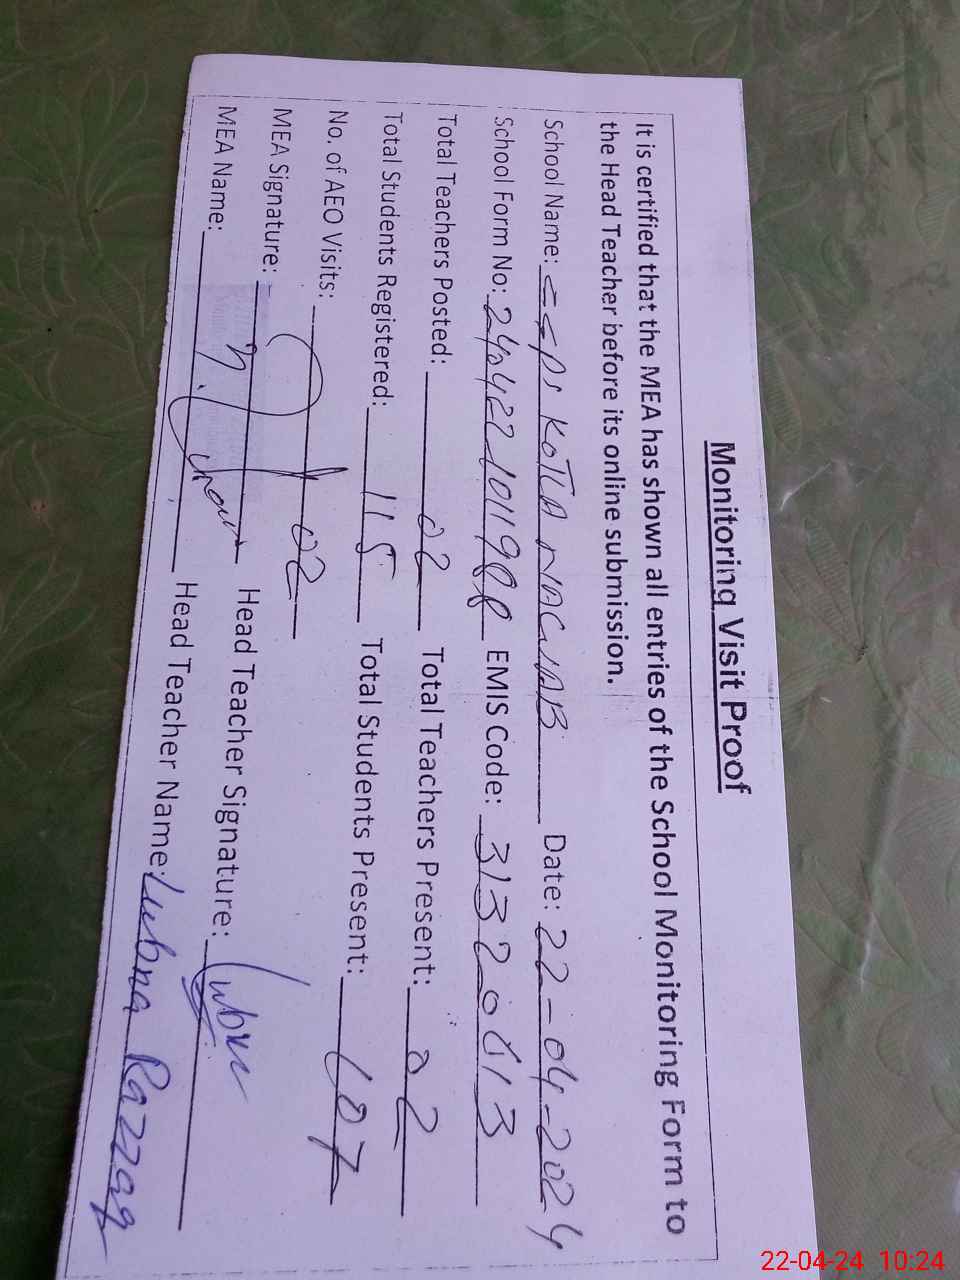 Monitoring Visit Proof
It is certified that the MEA has shown all entries of the School Monitoring Form to
the Head Teacher before its online submission.
School Name: KOTLA Date: 22-04-2024
School Form No: EMIS Code:
Total Teachers Posted: 02 Total Teachers Present: 02
Total Students Registered: 115 Total Students Present: 107
No. of AEO Visits: 02
MEA Signature: Head Teacher Signature: Lubna
MEA Name: Head Teacher Name: Lubna Razzaq
22-04-24 10:24